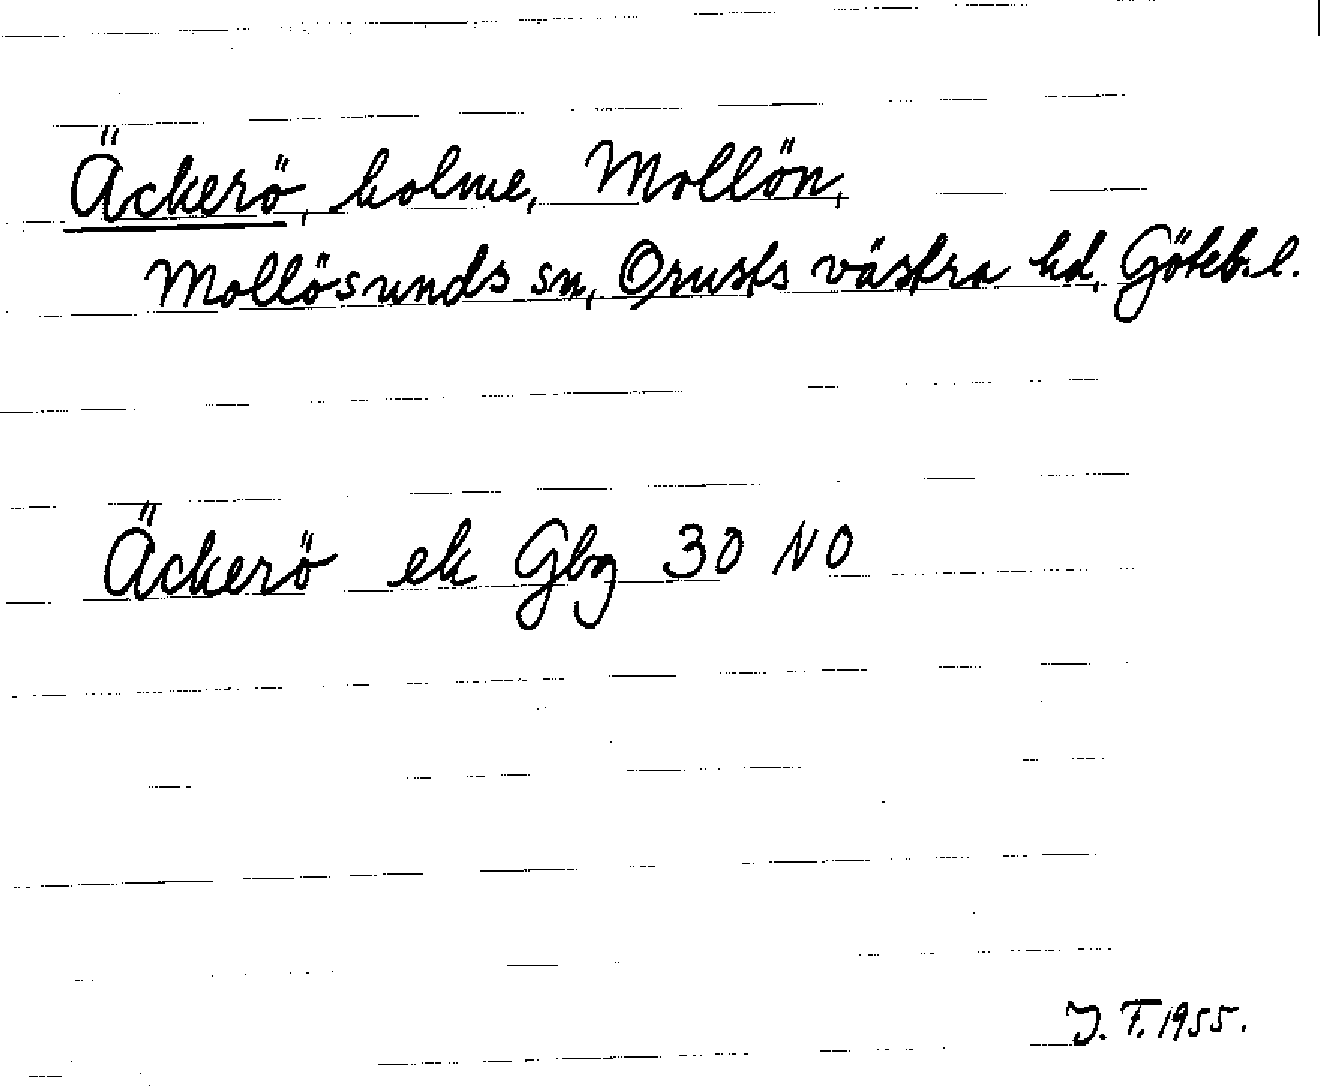 Äckerö, holme, Mollön,
Mollösunds sn, Orusts västra hd, Göteb. l.
Äckerö ek Gbg 30 NO
J. F. 1955.